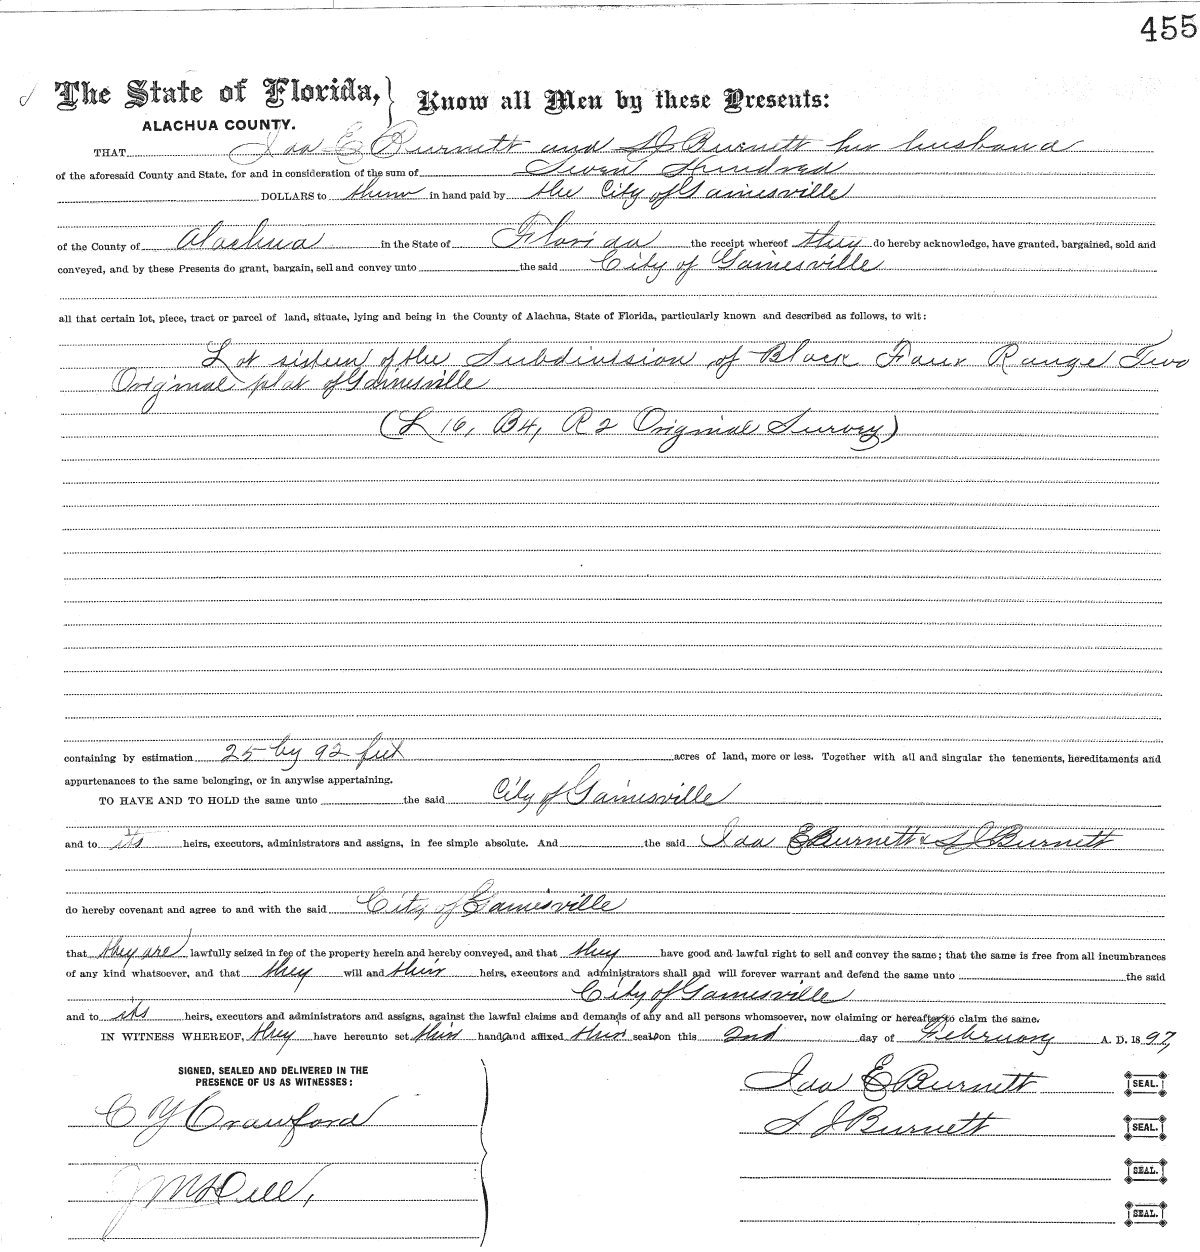 455
The State of Florida, } Know all Men by these Presents:
ALACHUA COUNTY.
THAT Ida E Burnett and S J Burnett her husband
of the aforesaid County and State, for and in consideration of the sum of Seven Hundred
DOLLARS to them in hand paid by the City of Gainesville
of the County of Alachua in the State of Florida the receipt whereof they do hereby acknowledge, have granted, bargained, sold and
conveyed, and by these Presents do grant, bargain, sell and convey unto the said City of Gainesville
all that certain lot, piece, tract or parcel of land, situate, lying and being in the County of Alachua, State of Florida, particularly known and described as follows, to wit:
Lot sixteen of the Subdivision of Block Four Range Two
Original plat of Gainesville
(L 16, B4, R2 Original Survey)
containing by estimation 25 by 92 feet acres of land, more or less. Together with all and singular the tenements, hereditaments and
appurtenances to the same belonging, or in anywise appertaining.
TO HAVE AND TO HOLD the same unto the said City of Gainesville
and to its heirs, executors, administrators and assigns, in fee simple absolute. And the said Ida E Burnett & S J Burnett
do hereby covenant and agree to and with the said City of Gainesville
that they are lawfully seized in fee of the property herein and hereby conveyed, and that they have good and lawful right to sell and convey the same; that the same is free from all incumbrances
of any kind whatsoever, and that they will and their heirs, executors and administrators shall and will forever warrant and defend the same unto the said
City of Gainesville
and to its heirs, executors and administrators and assigns, against the lawful claims and demands of any and all persons whomsoever, now claiming or hereafter to claim the same.
IN WITNESS WHEREOF, they have hereunto set their hands and affixed their seals on this 2nd day of February A. D. 1897,
SIGNED, SEALED AND DELIVERED IN THE
PRESENCE OF US AS WITNESSES:
Ida E Burnett SEAL.
C Y Crawford
S J Burnett SEAL.
SEAL.
SEAL.